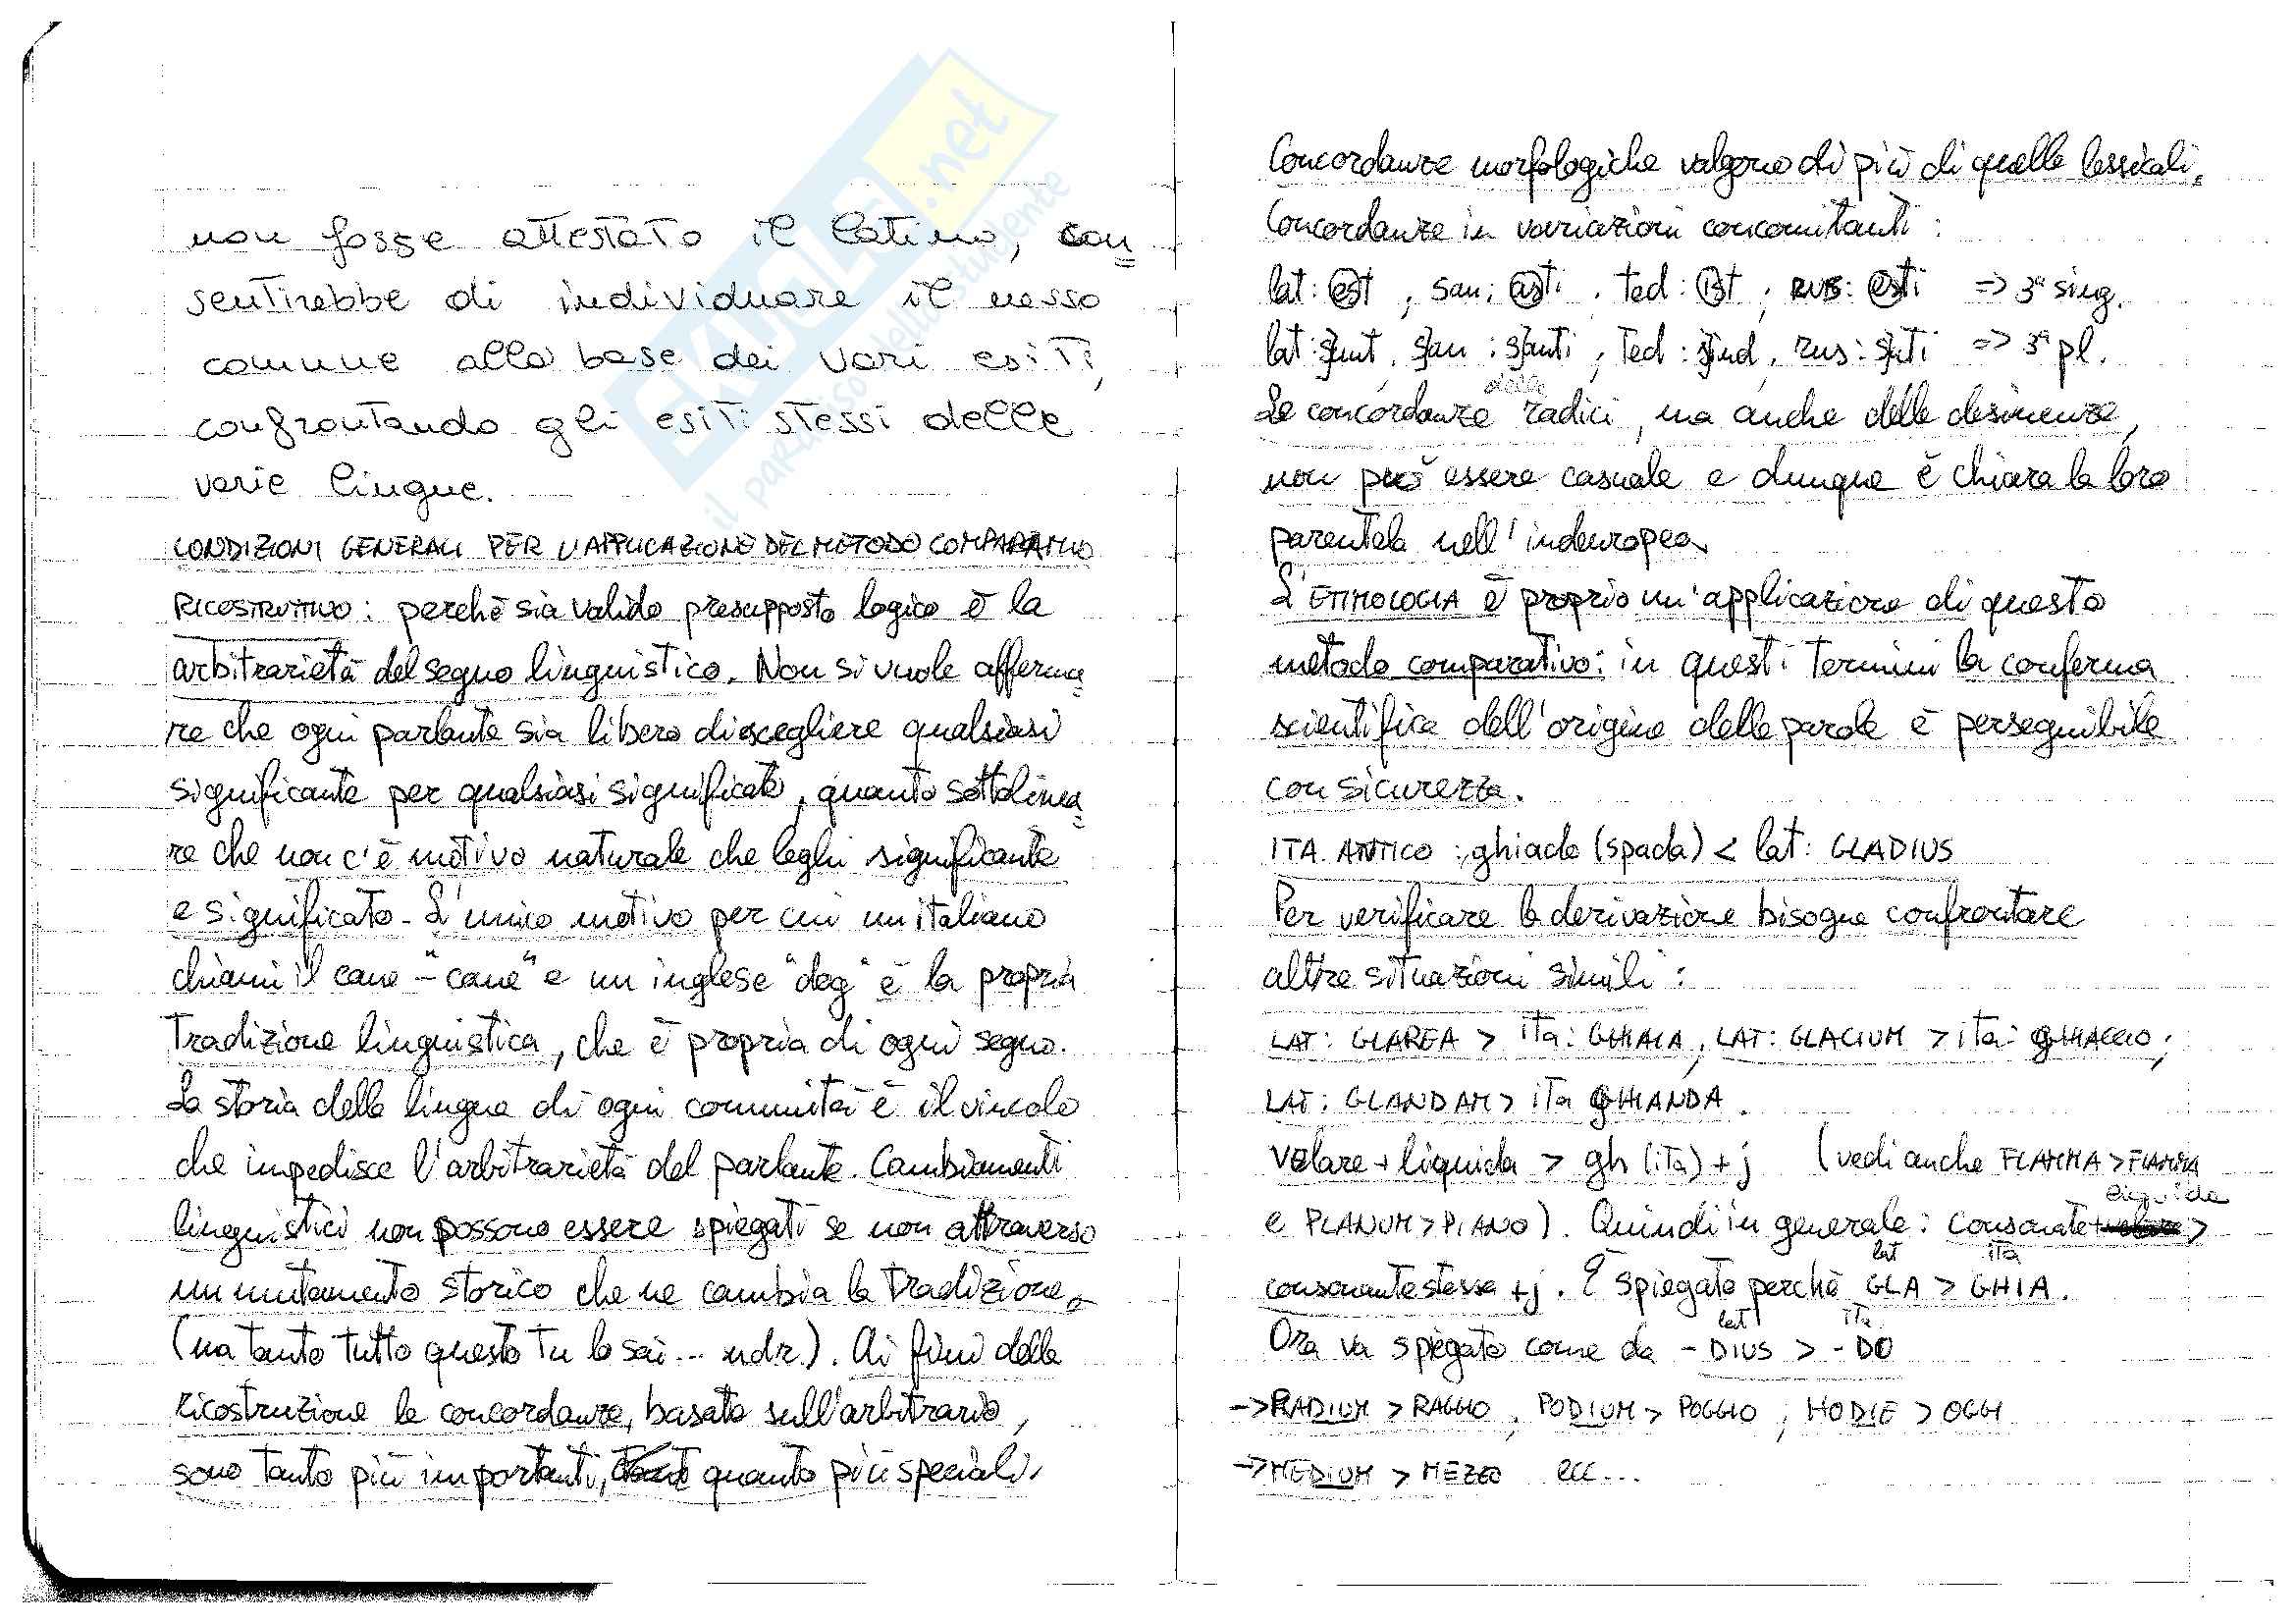 non fosse attestato il latino, con=
sentirebbe di individuare il nesso
comune alla base dei vari esiti,
confrontando gli esiti stessi delle
varie lingue.
CONDIZIONI GENERALI PER L'APPLICAZIONE DEL METODO COMPARATIVO
RICOSTRUTTIVO: perchè sia valido presupposto logico è la
arbitrarietà del segno linguistico. Non si vuole afferma=
re che ogni parlante sia libero di scegliere qualsiasi
significante per qualsiasi significato, quanto sottolinea=
re che non c'è motivo naturale che leghi significante
e significato. L'unico motivo per cui un italiano
chiami il cane "cane" e un inglese "dog" è la propria
tradizione linguistica, che è propria di ogni segno.
La storia della lingua di ogni comunità è il vincolo
che impedisce l'arbitrarietà del parlante. Cambiamenti
linguistici non possono essere spiegati se non attraverso
un mutamento storico che ne cambia la tradizione.
(ma tanto tutto questo tu lo sai... ndr.). Ai fini della
ricostruzione le concordanze, basate sull'arbitrario,
sono tanto più importanti, quanto più speciali.
Concordanze morfologiche valgono di più di quelle lessicali.
Concordanze in variazioni concomitanti:
lat: est, san: asti, ted: ist, rus: esti => 3ª sing.
lat: sunt, san: santi, ted: sind, rus: suti => 3ª pl.
Le concordanze delle radici, ma anche delle desinenze,
non può essere casuale e dunque è chiara la loro
parentela nell'indeuropeo.
L'ETIMOLOGIA è proprio un'applicazione di questo
metodo comparativo: in questi termini la conferma
scientifica dell'origine delle parole è perseguibile
con sicurezza.
ITA ANTICO: ghiado (spada) < lat: GLADIUS
Per verificare la derivazione bisogna confrontare
altre situazioni simili:
LAT: GLAREA > ita: GHIAIA, LAT: GLACIUM > ita: GHIACCIO;
LAT: GLANDAM > ita GHIANDA.
Velare + liquida > gh (ita) + j (vedi anche FLAMMA > FIAMMA
e PLANUM > PIANO). Quindi in generale: consonante + liquida >
consonante stessa + j. È spiegato perchè lat GLA > ita GHIA.
Ora va spiegato come da lat -DIUS > ita -DO
-> RADIUM > RAGGIO, PODIUM > POGGIO, HODIE > OGGI
-> MEDIUM > MEZZO ecc...
GRUGLSI.net
il paradiso dello studente